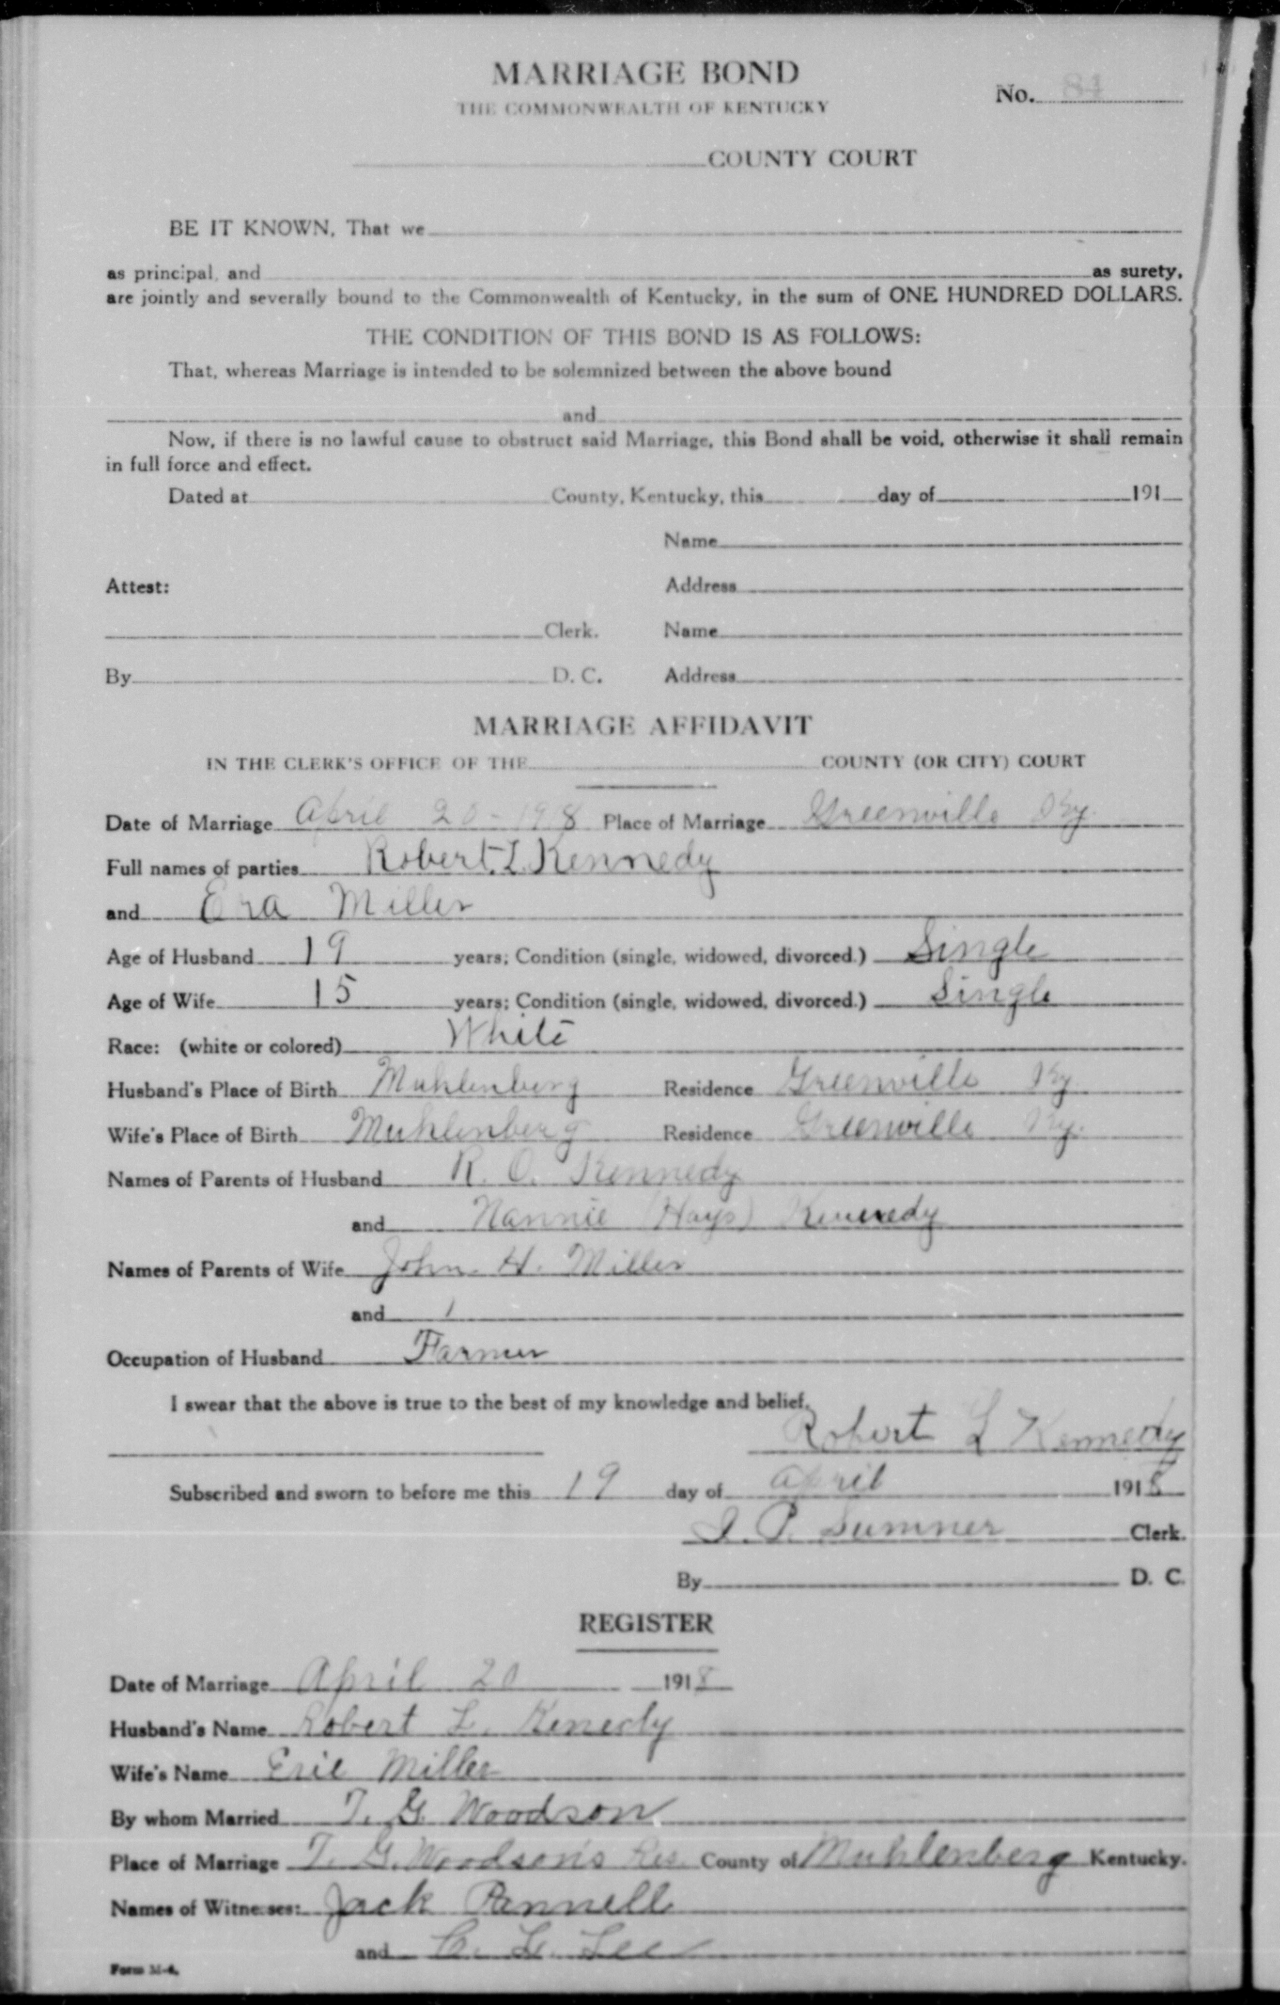 MARRIAGE BOND
THE COMMONWEALTH OF KENTUCKY
No. 84
COUNTY COURT
BE IT KNOWN, That we
as principal, and as surety,
are jointly and severally bound to the Commonwealth of Kentucky, in the sum of ONE HUNDRED DOLLARS.
THE CONDITION OF THIS BOND IS AS FOLLOWS:
That, whereas Marriage is intended to be solemnized between the above bound
and
Now, if there is no lawful cause to obstruct said Marriage, this Bond shall be void, otherwise it shall remain
in full force and effect.
Dated at County, Kentucky, this day of 191
Name
Attest: Address
Clerk. Name
By D. C. Address
MARRIAGE AFFIDAVIT
IN THE CLERK'S OFFICE OF THE COUNTY (OR CITY) COURT
Date of Marriage April 20-1918 Place of Marriage Greenville Ky.
Full names of parties Robert. L. Kennedy
and Era Miller
Age of Husband 19 years; Condition (single, widowed, divorced.) Single
Age of Wife 15 years; Condition (single, widowed, divorced.) Single
Race: (white or colored) White
Husband's Place of Birth Muhlenberg Residence Greenville Ky
Wife's Place of Birth Muhlenberg Residence Greenville Ky.
Names of Parents of Husband R. O. Kennedy
and Nannie (Hays) Kennedy
Names of Parents of Wife John H. Miller
and
Occupation of Husband Farmer
I swear that the above is true to the best of my knowledge and belief.
Robert L Kennedy
Subscribed and sworn to before me this 19 day of April 1918
Sumner Clerk.
By D. C.
REGISTER
Date of Marriage April 20 1918
Husband's Name Robert L. Kenedy
Wife's Name Erie Miller
By whom Married T. G. Woodson
Place of Marriage T. G. Woodson's Res. County of Muhlenberg Kentucky.
Names of Witnesses: Jack Pannell
and C. L. Lee
Form M-4.